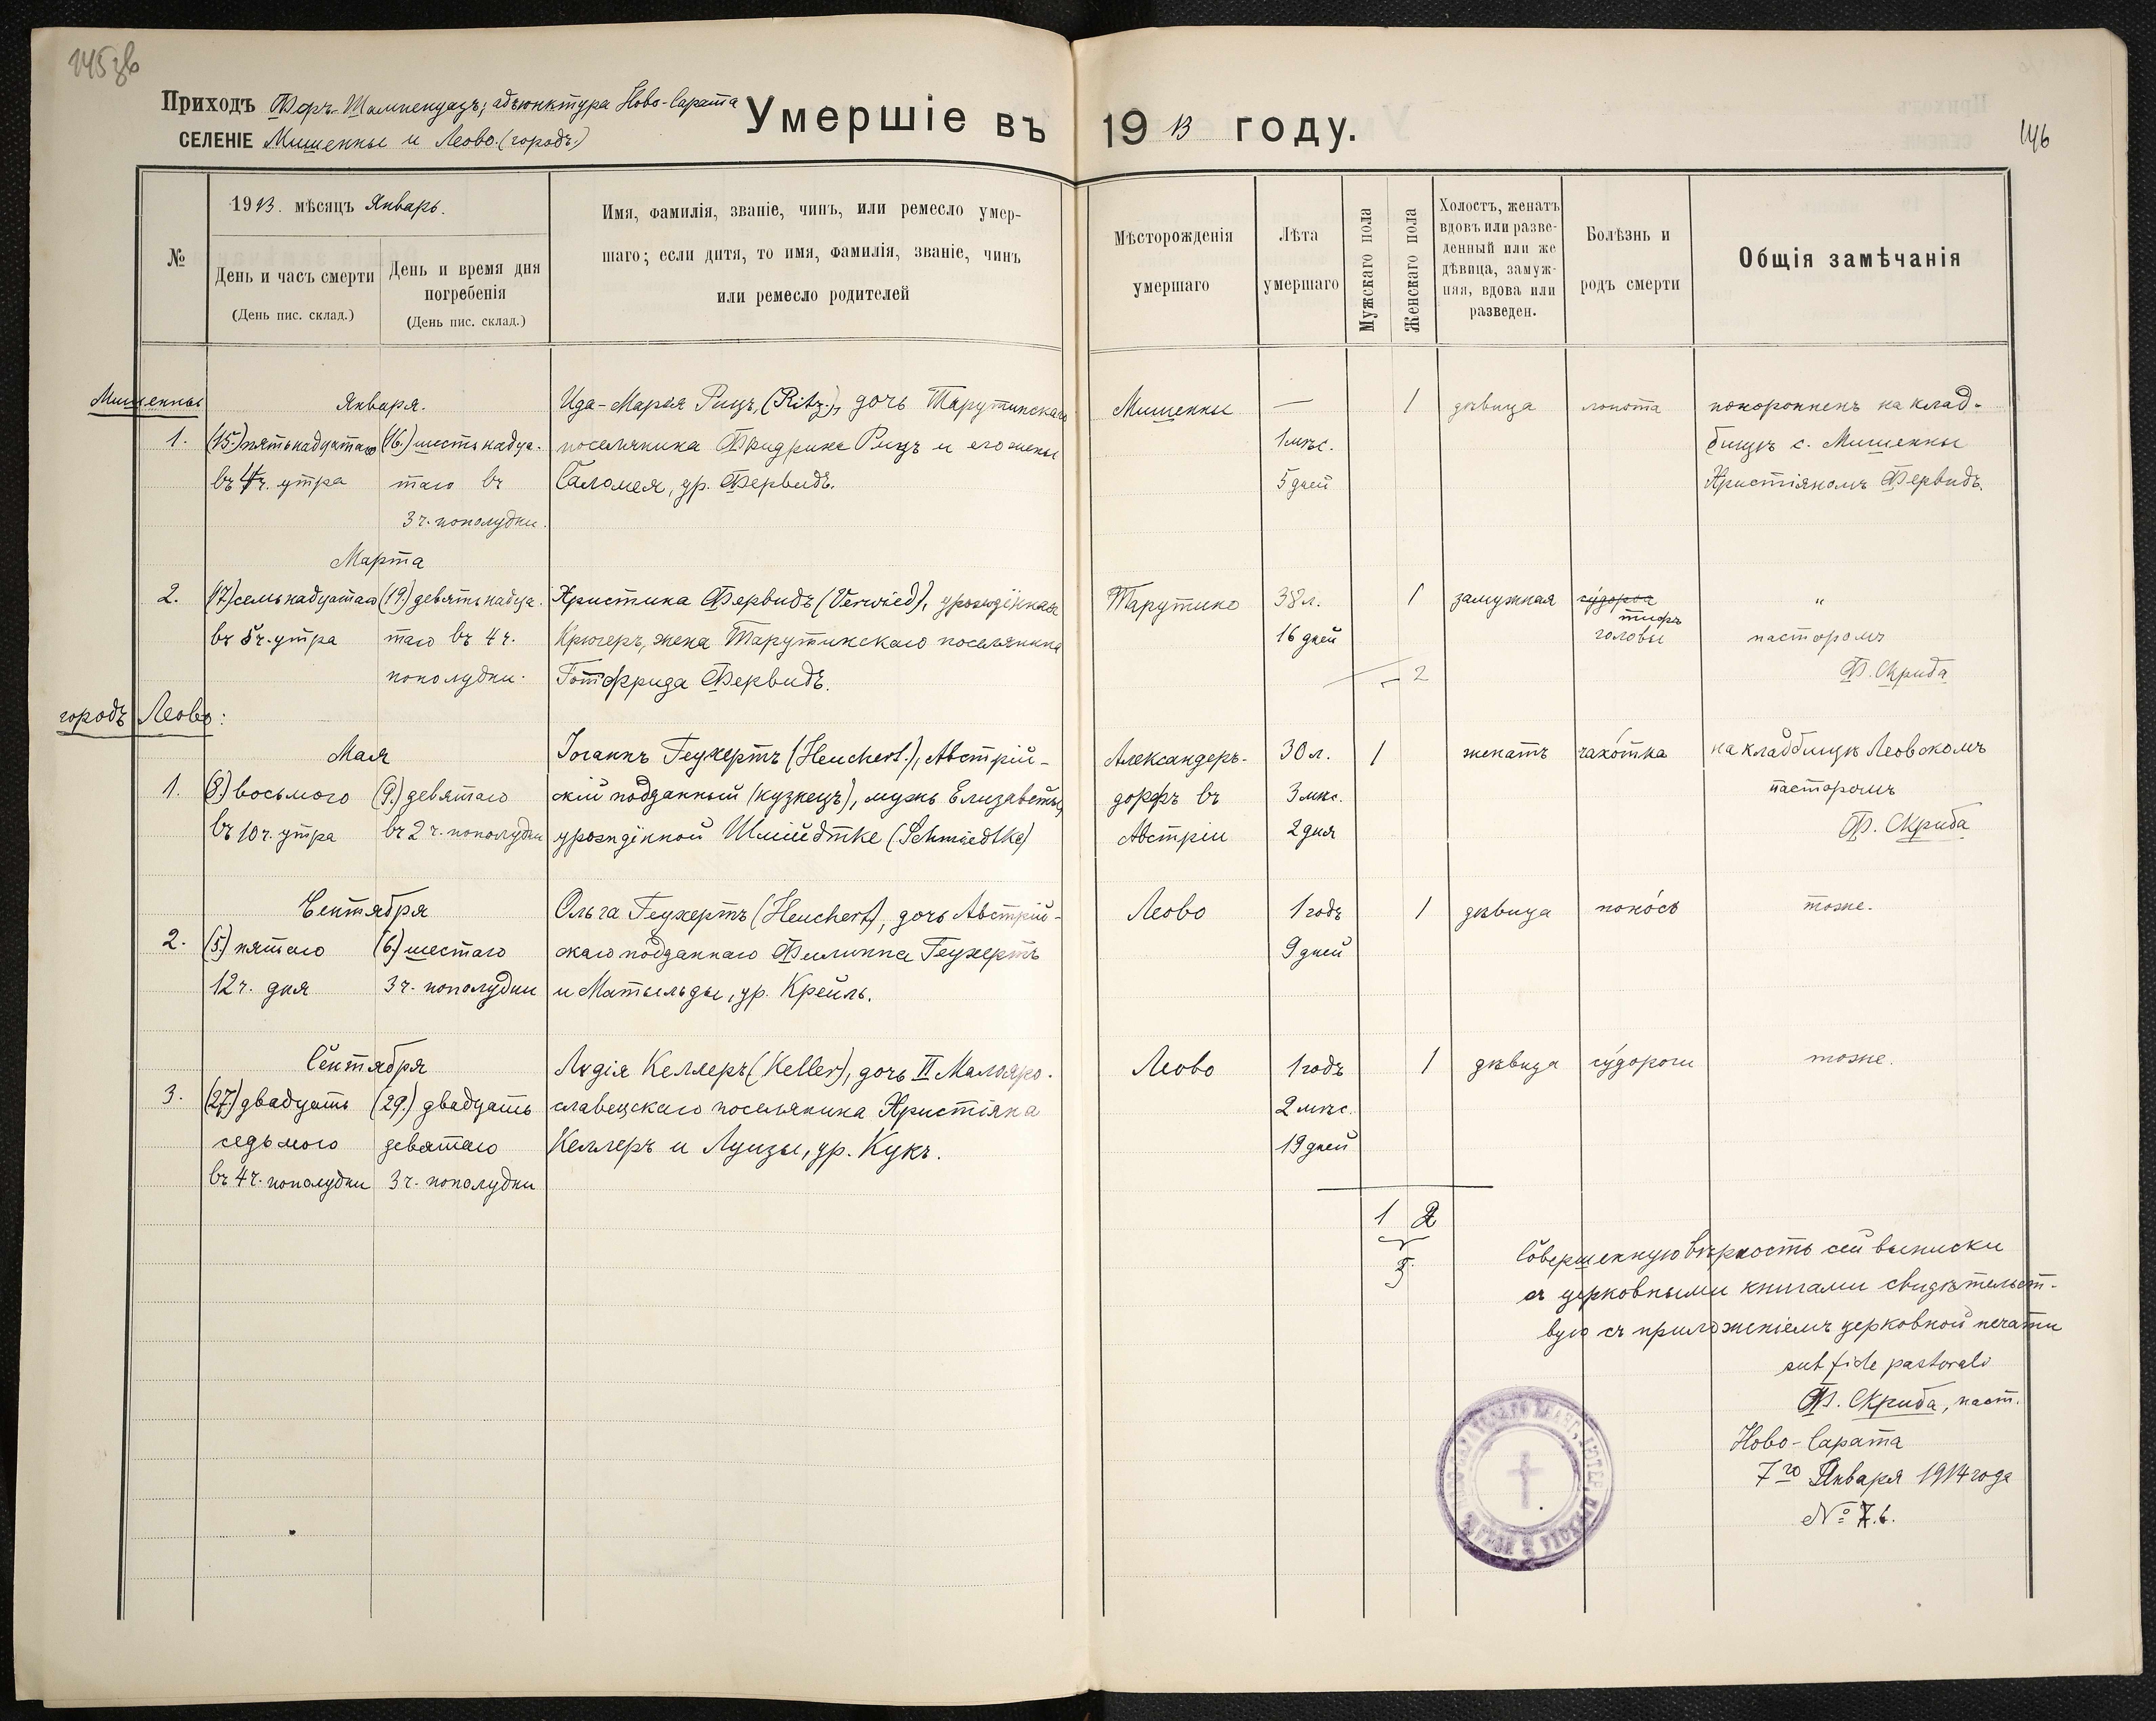 145 об
Приходъ Фер-Шампенуазъ; адъюнктура Ново-Сарата
СЕЛЕНІЕ Мишенны и Леово. (городъ.)
Умершіе въ 1913 году.
146
№
1913. мѣсяцъ Январь.
День и часъ смерти
(День пис. склад.)
День и время дня
погребенія
(День пис. склад.)
Имя, фамилія, званіе, чинъ, или ремесло умер-
шаго; если дитя, то имя, фамилія, званіе, чинъ
или ремесло родителей
Мѣсторожденія
умершаго
Лѣта
умершаго
Мужскаго пола
Женскаго пола
Холостъ, женатъ
вдовъ или разве-
денный или же
дѣвица, замуж-
няя, вдова или
разведен.
Болѣзнь и
родъ смерти
Общія замѣчанія
Мишенны
Января.
Ида-Марія Рицъ, (Ritz), дочь Тарутинскаго
Мишенны — 1 дѣвица ломота похороненъ на клад-
1. (15.) пятьнадцатаго (16.) шестьнадца- поселянина Фридриха Рицъ и его жены
1 мѣс. бищѣ с. Мишенны
въ 4 ч. утра таго въ Саломея, ур. Фервидъ.
5 дней Христіяномъ Фервидъ.
3 ч. пополудни.
Марта
2. (17.) семьнадцатаго (19.) девятьнадца- Христина Фервидъ (Verwied), урождённая
Тарутино 38 л. 1 замужная судорога "
тифъ
въ 5 ч. утра таго въ 4 ч. Крюгеръ, жена Тарутинскаго поселянина
16 дней головы пасторомъ
пополудни. Готфрида Фервидъ.
2 Ф. Скриба
городъ Леово:
Мая Іоганнъ Геухертъ (Heuchert.), Австрій-
Александеръ- 30 л. 1 женатъ чахотка на кладбищѣ Леовскомъ
1. (8.) восьмого (9.) девятаго скій подданный (кузнецъ), мужъ Елизаветы,
дорфъ въ 3 мѣс. пасторомъ
въ 10 ч. утра въ 2 ч. пополудни урождённой Шмійдтке (Schmiedtke)
Австріи 2 дня Ф. Скриба
Сентября Ольга Геухертъ (Heuchert), дочь Австрій-
Леово 1 годъ 1 дѣвица поносъ тоже.
2. (5.) пятаго (6.) шестаго скаго подданнаго Филиппа Геухертъ
9 дней
12 ч. дня 3 ч. пополудни и Матыльды, ур. Крейль.
Сентября Лидія Келлеръ (Keller), дочь II Малояро-
Леово 1 годъ 1 дѣвица судороги тоже.
3. (27.) двадцать (29.) двадцать славецскаго поселянина Христіяна
2 мѣс.
седьмого девятаго Келлеръ и Луизы, ур. Кукъ.
19 дней
въ 4 ч. пополудни 3 ч. пополудни
1 2
3
Совершенную вѣрность сей выписки
съ церковными книгами свидѣтельст-
вую съ приложеніемъ церковной печати
sub fide pastorali
Ф. Скриба, паст.
Ново-Сарата
7го Января 1914 года
№ 7.6.